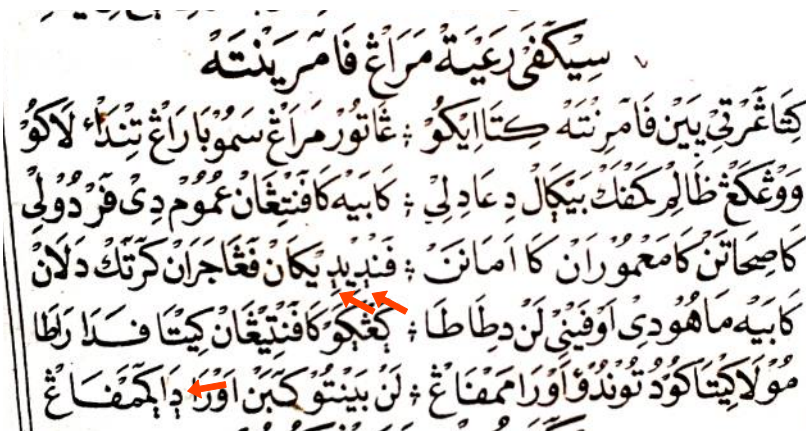 سيكفى رعية مراڠ فامرينته
كيتا ڠرتي يين فامرنته كيتا ايكو ؛ ڠاتور مراڠ سموبا راڠ تندأ لاكو
ووڠكڠ ظالم كفك بيكال دعادلي ؛ كابيه كافنتيڠان عموم دى فردولي
كاصحاتن كامعموران كا امانن ؛ فنديديكان فڠاجران كرتك دلان
كابيه ماهودى اوفيني لن دطاطا ؛ كڠكو كافنتيڠان كيتا فدا راطا
مولا كيتا كودو توندؤ اورا ممفاڠ ؛ لن بينتو كبن اورا دا ݢمفاڠ